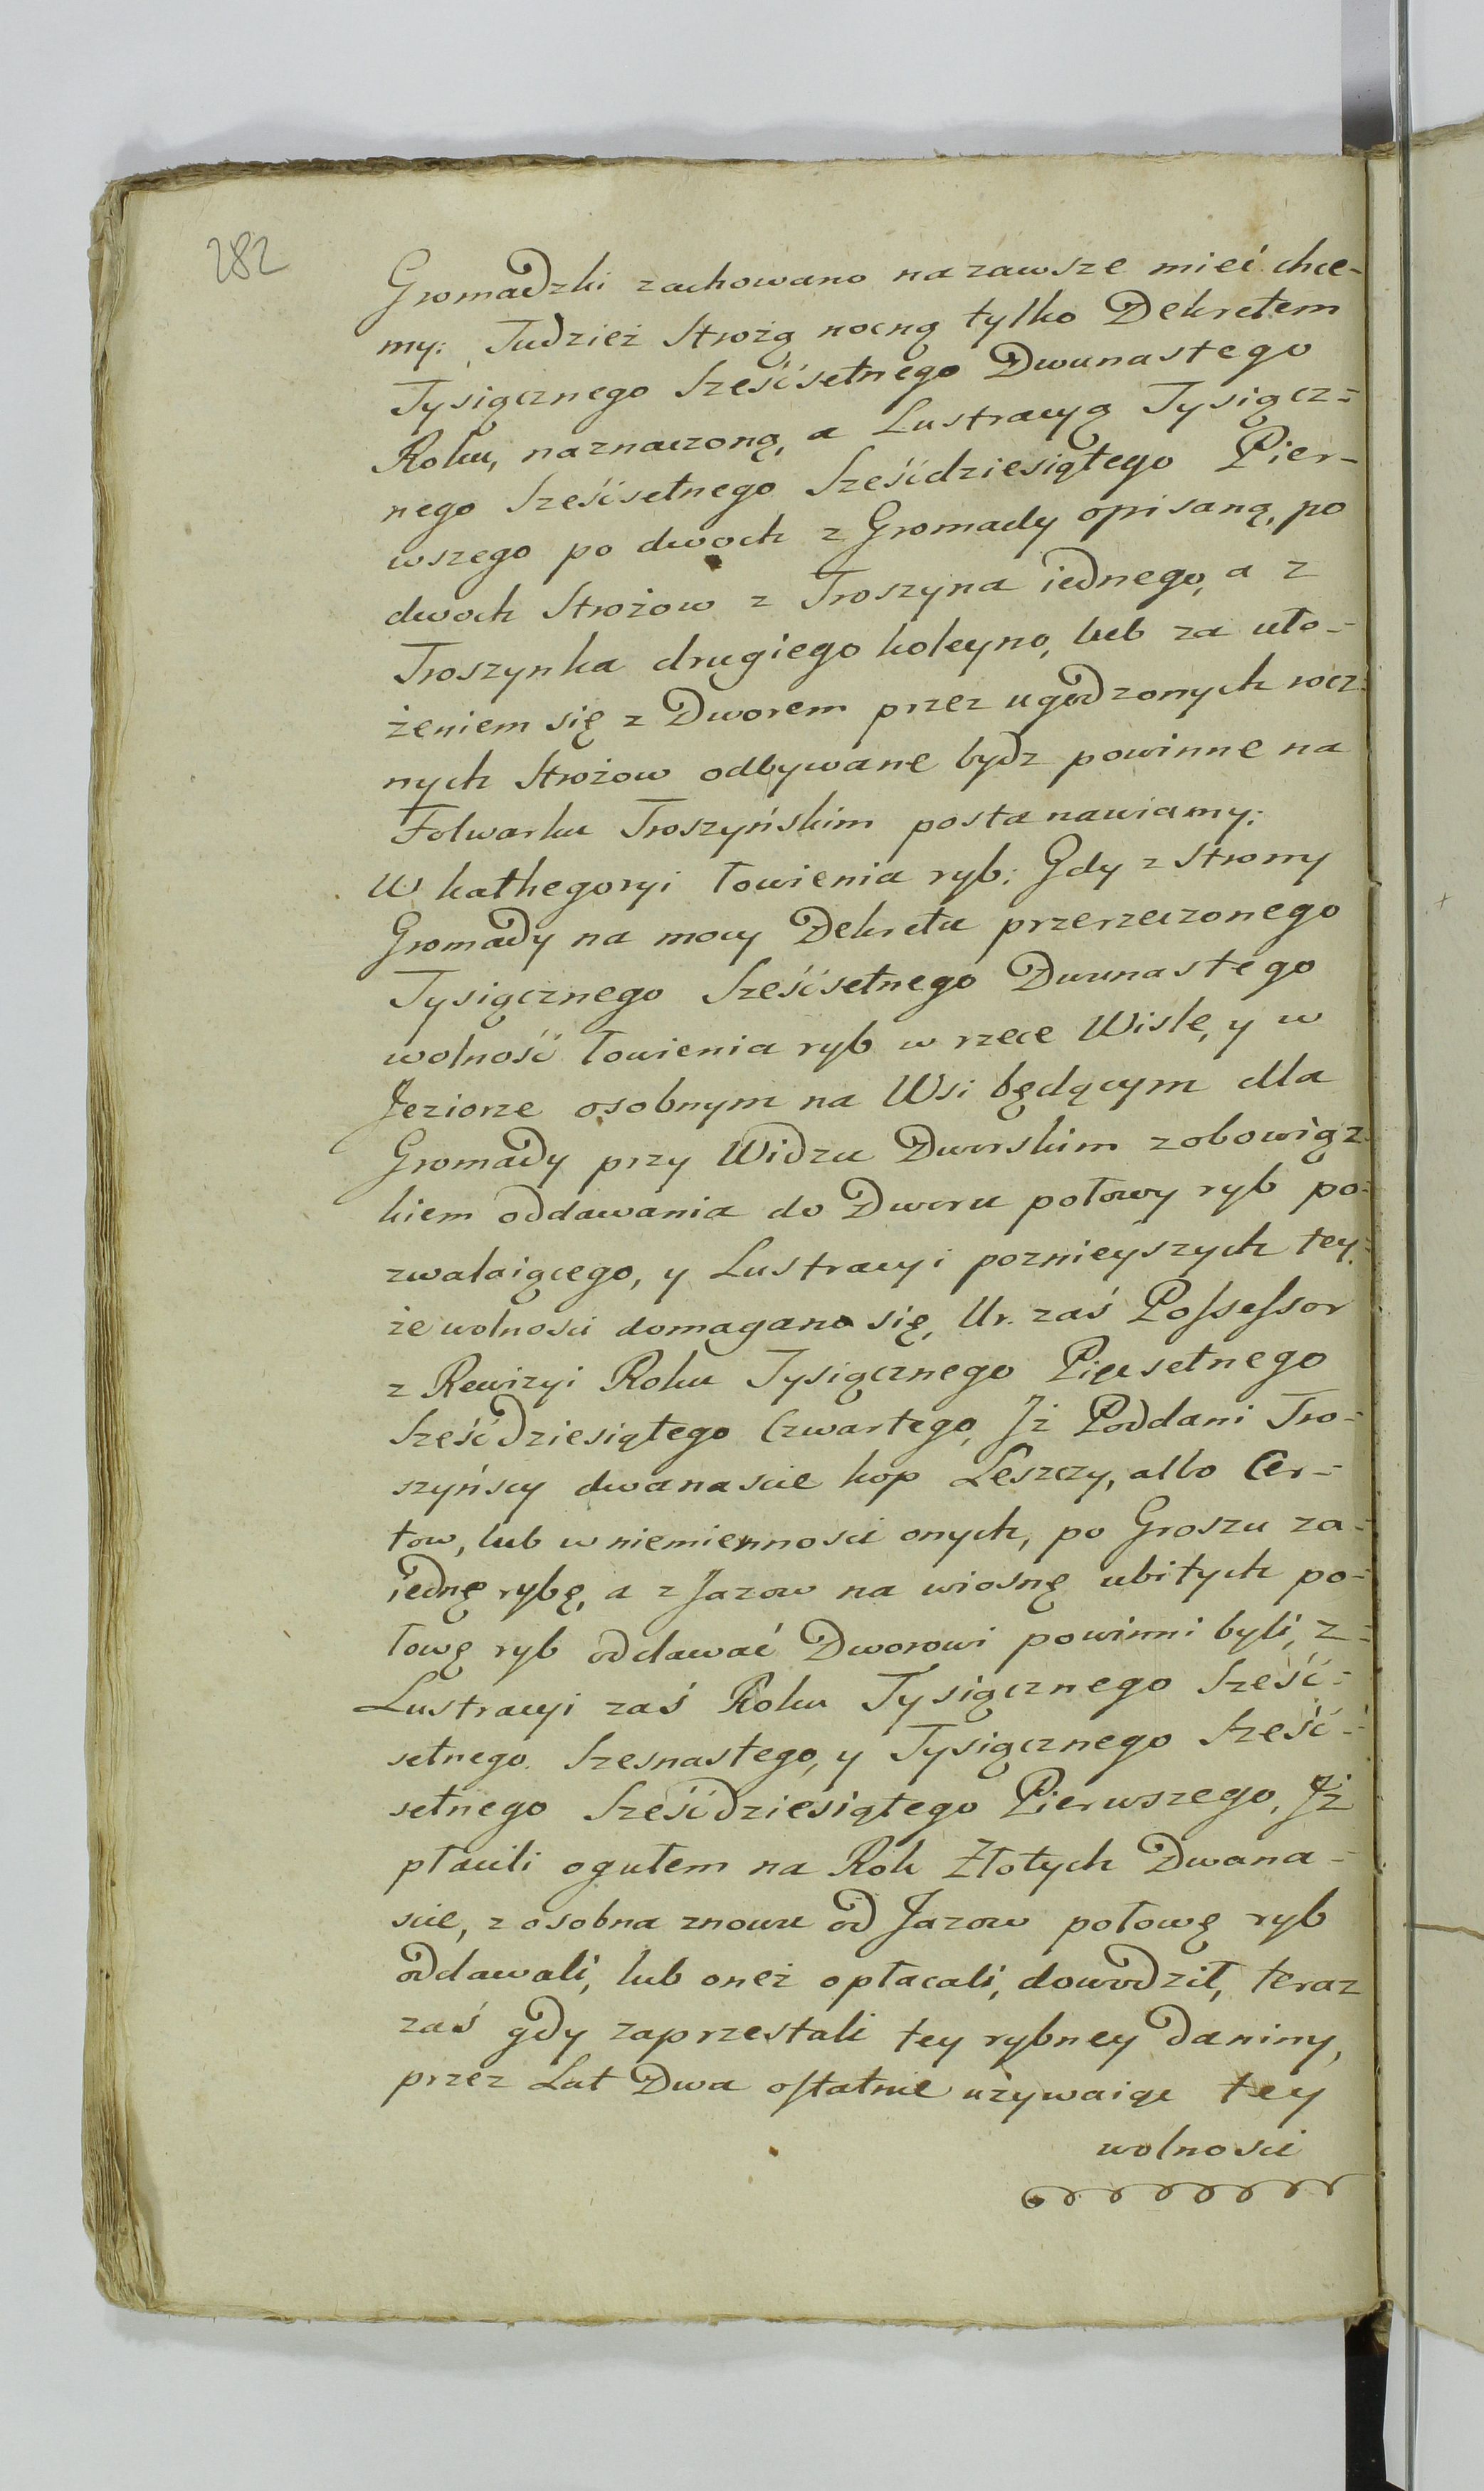 282
Gromadzki zachowano na zawsze mieć chce-
my: Tudzież Strożą nocną tylko Dekretem
Tysiącznego Sześćsetnego Dwunastego
Roku, naznaczoną, a Lustracyą Tysiącz=
nego Sześćsetnego Sześćdziesiątego Pier-
wszego po dwoch z Gromady opisaną, po
dwoch Strożow z Troszyna iednego, a z
Troszynka drugiego koleyno, lub za uło-
żeniem się z Dworem przez ugodzonych rocz=
nych Strożow odbywane bydz powinne na
Folwarku Troszyńskim postanawiamy:
W kathegoryi łowienia ryb: Gdy z Strony
Gromady na mocy Dekretu przerzeczonego
Tysiącznego Sześćsetnego Dwunastego
wolność łowienia ryb w rzece Wisle, y w
Jeziorze osobnym na Wsi będącym dla
Gromady przy Widzu Dworskim z obowiąz=
kiem oddawania do Dworu połowy ryb po=
zwalaiącego, y Lustracyi poznieyszych tey=
że wolnosci domagano się, Ur. zaś Possessor
z Rewizyi Roku Tysiącznego Pięcsetnego
Sześćdziesiątego Czwartego, Jż Poddani Tro-
szyńscy dwanascie kop Leszczy, albo Cer-
tow, lub w niemiennosci onych, po Groszu za=
iednę rybę, a z Jazow na wiosnę ubitych po=
łowę ryb oddawać Dworowi powinni byli, z=
Lustracyi zaś Roku Tysiącznego Sześć=
setnego Szesnastego, y Tysiącznego Sześć=
setnego Sześćdziesiątego Pierwszego, Jż
płacili ogułem na Rok Złotych Dwana-
scie, z osobna znowu od Jazow połowę ryb
oddawali, lub oneż opłacali, dowodził, teraz
zaś gdy zaprzestali tey rybney Daniny,
przez Lat Dwa ostatnie używaiąc tey
wolnosci